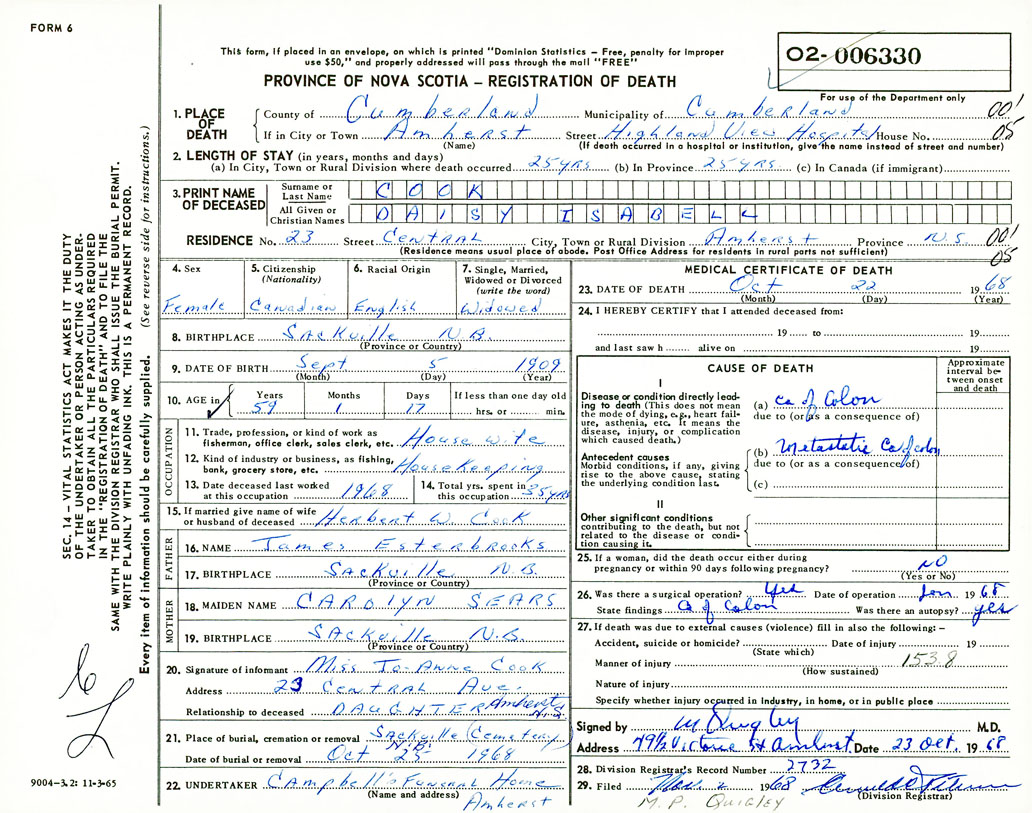 FORM 6
This form, if placed in an envelope, on which is printed "Dominion Statistics – Free, penalty for improper
use $50," and properly addressed will pass through the mail "FREE"
PROVINCE OF NOVA SCOTIA – REGISTRATION OF DEATH
02- 006330
For use of the Department only
1. PLACE OF DEATH County of Cumberland Municipality of Cumberland 001
If in City or Town Amherst Street Highland View Hospital House No. 05
(Name) (If death occurred in a hospital or institution, give the name instead of street and number)
2. LENGTH OF STAY (in years, months and days)
(a) In City, Town or Rural Division where death occurred 25 yrs (b) In Province 25 yrs. (c) In Canada (if immigrant)
3. PRINT NAME OF DECEASED Surname or Last Name COOK
All Given or Christian Names DAISY ISABELL
RESIDENCE No. 23 Street Central City, Town or Rural Division Amherst Province N.S. 001
(Residence means usual place of abode. Post Office Address for residents in rural parts not sufficient) 05
4. Sex Female
5. Citizenship (Nationality) Canadian
6. Racial Origin English
7. Single, Married, Widowed or Divorced (write the word) Widowed
8. BIRTHPLACE Sackville N.B.
(Province or Country)
9. DATE OF BIRTH Sept 5 1909
(Month) (Day) (Year)
10. AGE in Years 59 Months 1 Days 17 If less than one day old hrs. or min.
OCCUPATION
11. Trade, profession, or kind of work as
fisherman, office clerk, sales clerk, etc. House wife
12. Kind of industry or business, as fishing,
bank, grocery store, etc. Housekeeping
13. Date deceased last worked at this occupation 1968
14. Total yrs. spent in this occupation 35 yrs
15. If married give name of wife
or husband of deceased Herbert W. Cook
FATHER
16. NAME James Esterbrooks
17. BIRTHPLACE Sackville N.B.
(Province or Country)
MOTHER
18. MAIDEN NAME CAROLYN SEARS
19. BIRTHPLACE Sackville N.B.
(Province or Country)
20. Signature of informant Miss Jo-Anne Cook
Address 23 Central Ave. Amherst N.S
Relationship to deceased DAUGHTER
21. Place of burial, cremation or removal Sackville (Cemetery) N.B.
Date of burial or removal Oct 25 1968
22. UNDERTAKER Campbell's Funeral Home
(Name and address) Amherst
MEDICAL CERTIFICATE OF DEATH
23. DATE OF DEATH Oct 22 1968
(Month) (Day) (Year)
24. I HEREBY CERTIFY that I attended deceased from:
19 to 19
and last saw h alive on 19
CAUSE OF DEATH
Approximate interval between onset and death
I
Disease or condition directly lead-
ing to death (This does not
mean the mode of dying, e.g., heart fail-
ure, asthenia, etc. It means the
disease, injury, or complication
which caused death.)
(a) Ca of Colon
due to (or as a consequence of)
Antecedent causes
Morbid conditions, if any, giving
rise to the above cause, stating
the underlying condition last.
(b) Metastatic Ca of colon
due to (or as a consequence of)
(c)
II
Other significant conditions
contributing to the death, but not
related to the disease or condi-
tion causing it.
25. If a woman, did the death occur either during
pregnancy or within 90 days following pregnancy? NO
(Yes or No)
26. Was there a surgical operation? Yes Date of operation Jan 1968
State findings Ca of Colon Was there an autopsy? yes
27. If death was due to external causes (violence) fill in also the following: –
Accident, suicide or homicide? Date of injury 19
(State which)
Manner of injury 153.8
(How sustained)
Nature of injury
Specify whether injury occurred in Industry, in home, or in public place
Signed by M Quigley M.D.
Address 79 1/2 Victoria St Amherst Date 23 Oct. 1968
28. Division Registrar's Record Number 2732
29. Filed 1968
(Division Registrar)
M. P. QUIGLEY
SEC. 14 – VITAL STATISTICS ACT MAKES IT THE DUTY
OF THE UNDERTAKER OR PERSON ACTING AS UNDER-
TAKER TO OBTAIN ALL THE PARTICULARS REQUIRED
IN THE "REGISTRATION OF DEATH" AND TO FILE THE
SAME WITH THE DIVISION REGISTRAR WHO SHALL ISSUE THE BURIAL PERMIT.
WRITE PLAINLY WITH UNFADING INK. THIS IS A PERMANENT RECORD.
Every item of information should be carefully supplied. (See reverse side for instructions.)
9004–3.2: 11-3-65